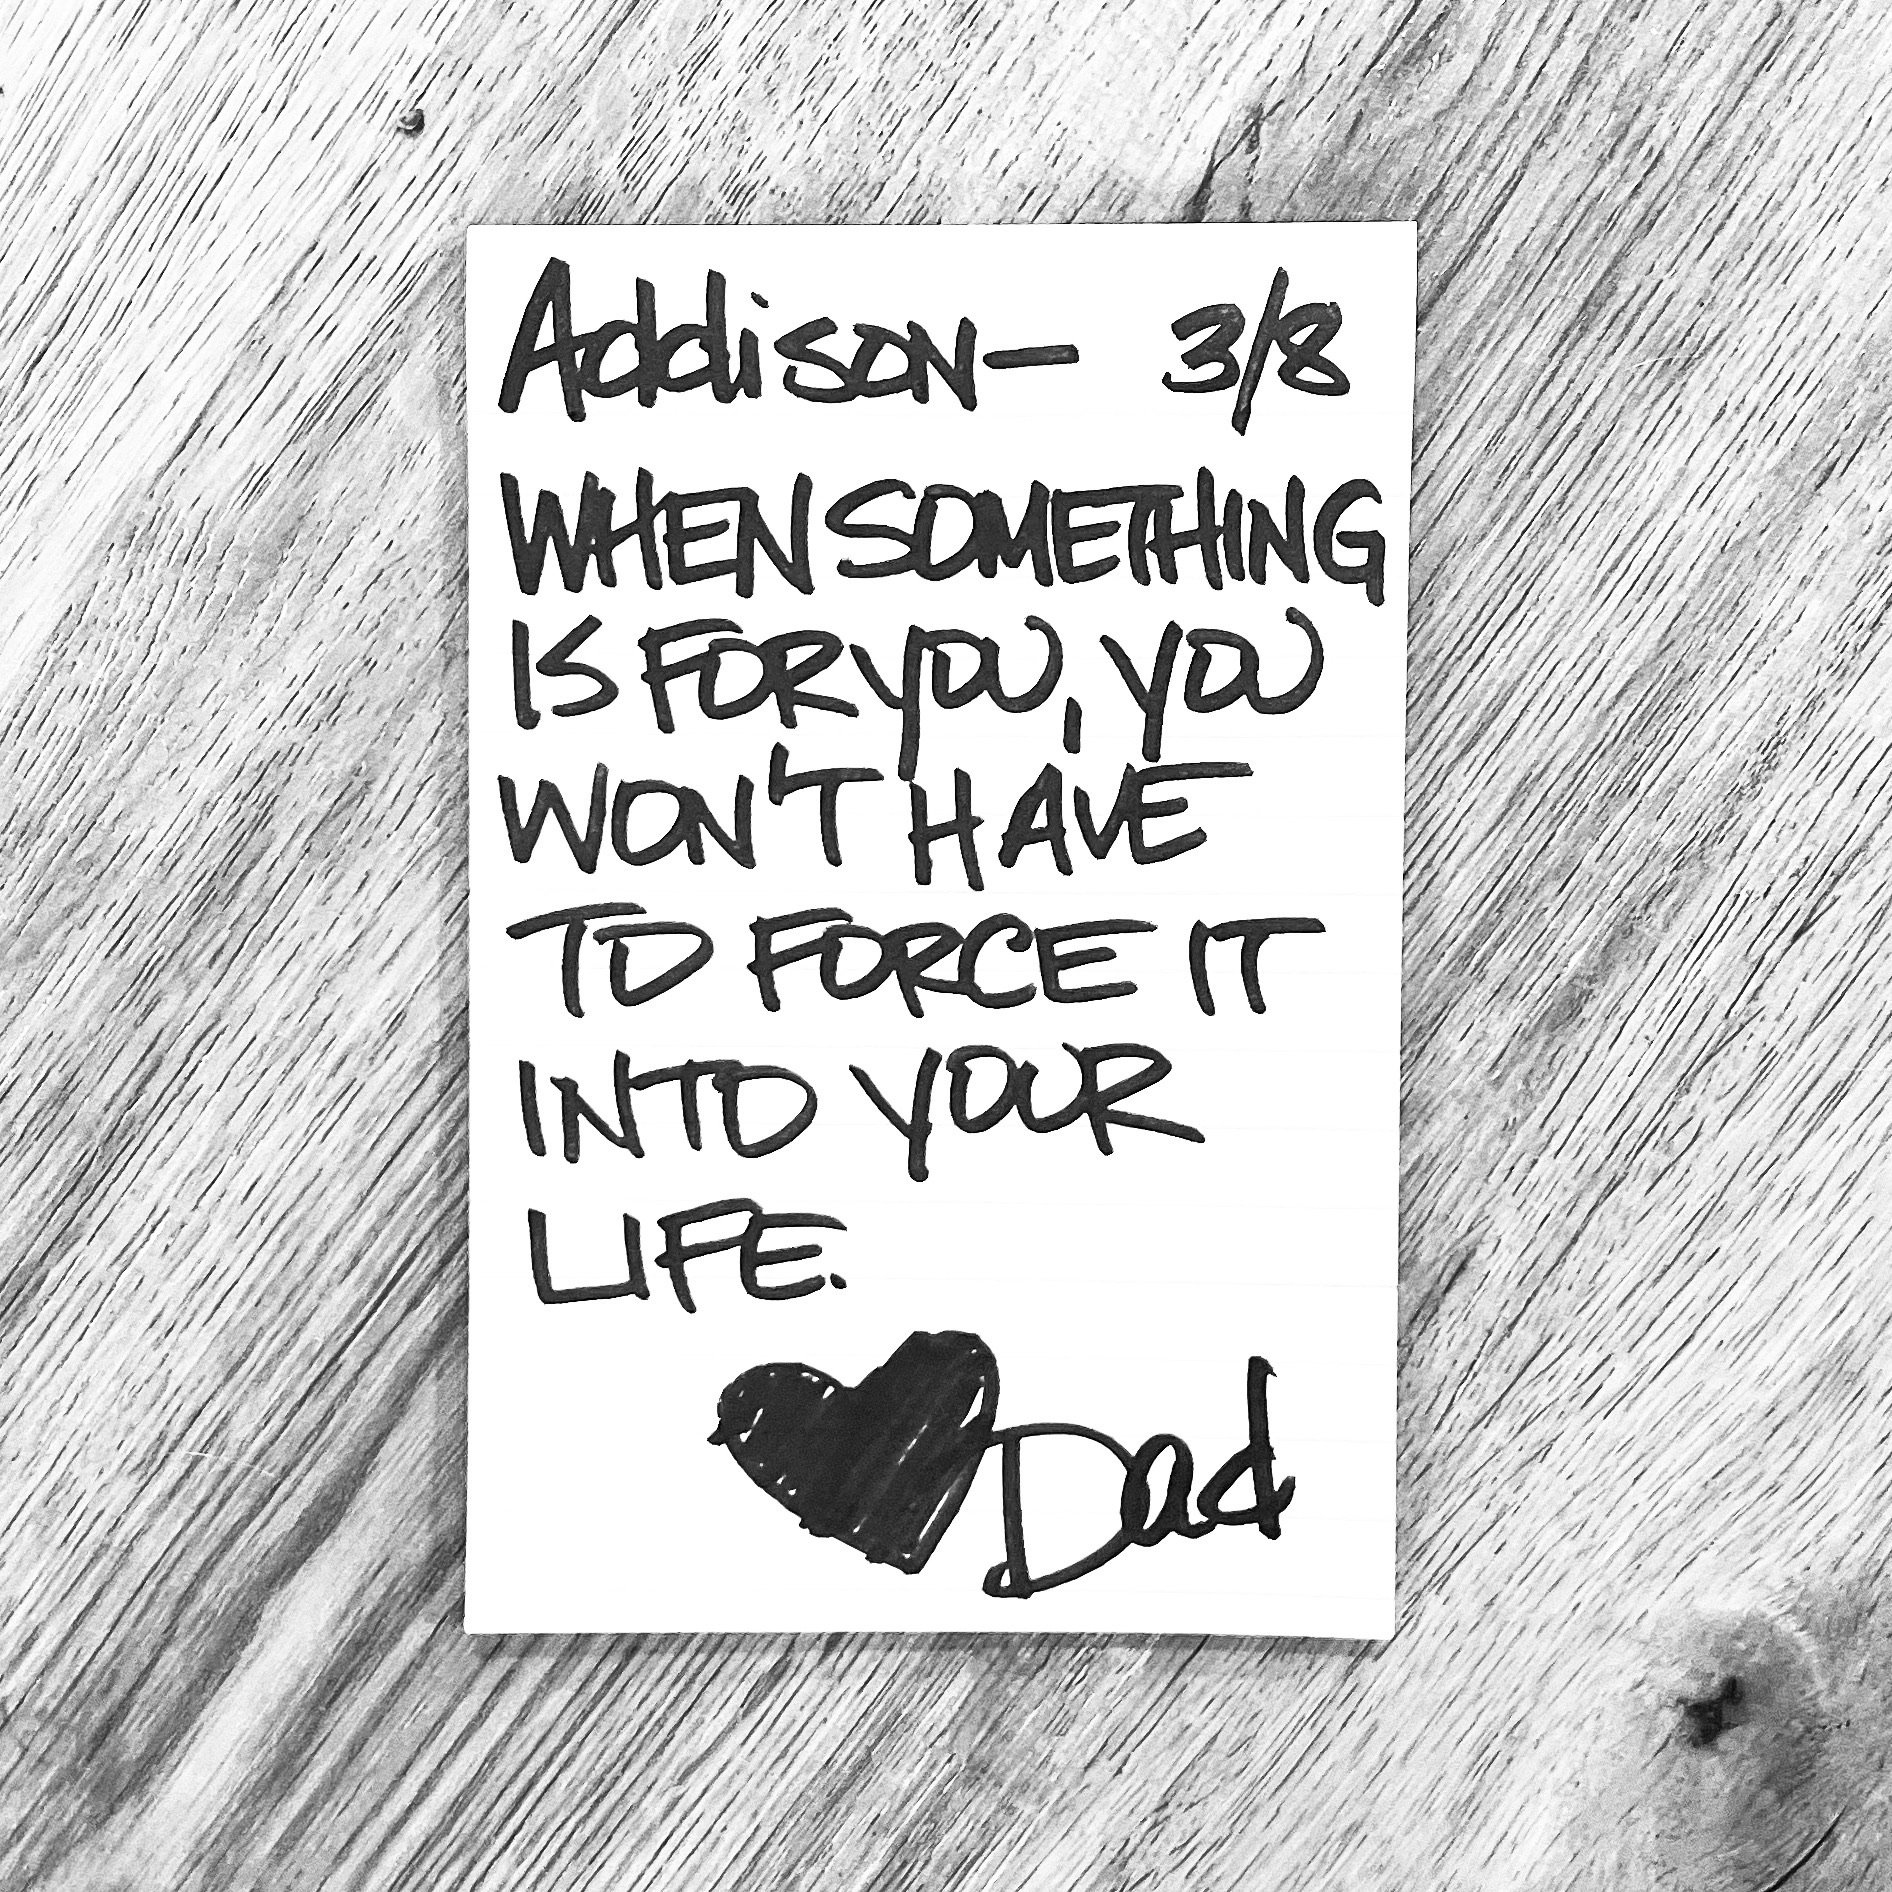 Addison— 3/8
WHEN SOMETHING
IS FOR YOU, YOU
WON'T HAVE
TO FORCE IT
INTO YOUR
LIFE.
Dad